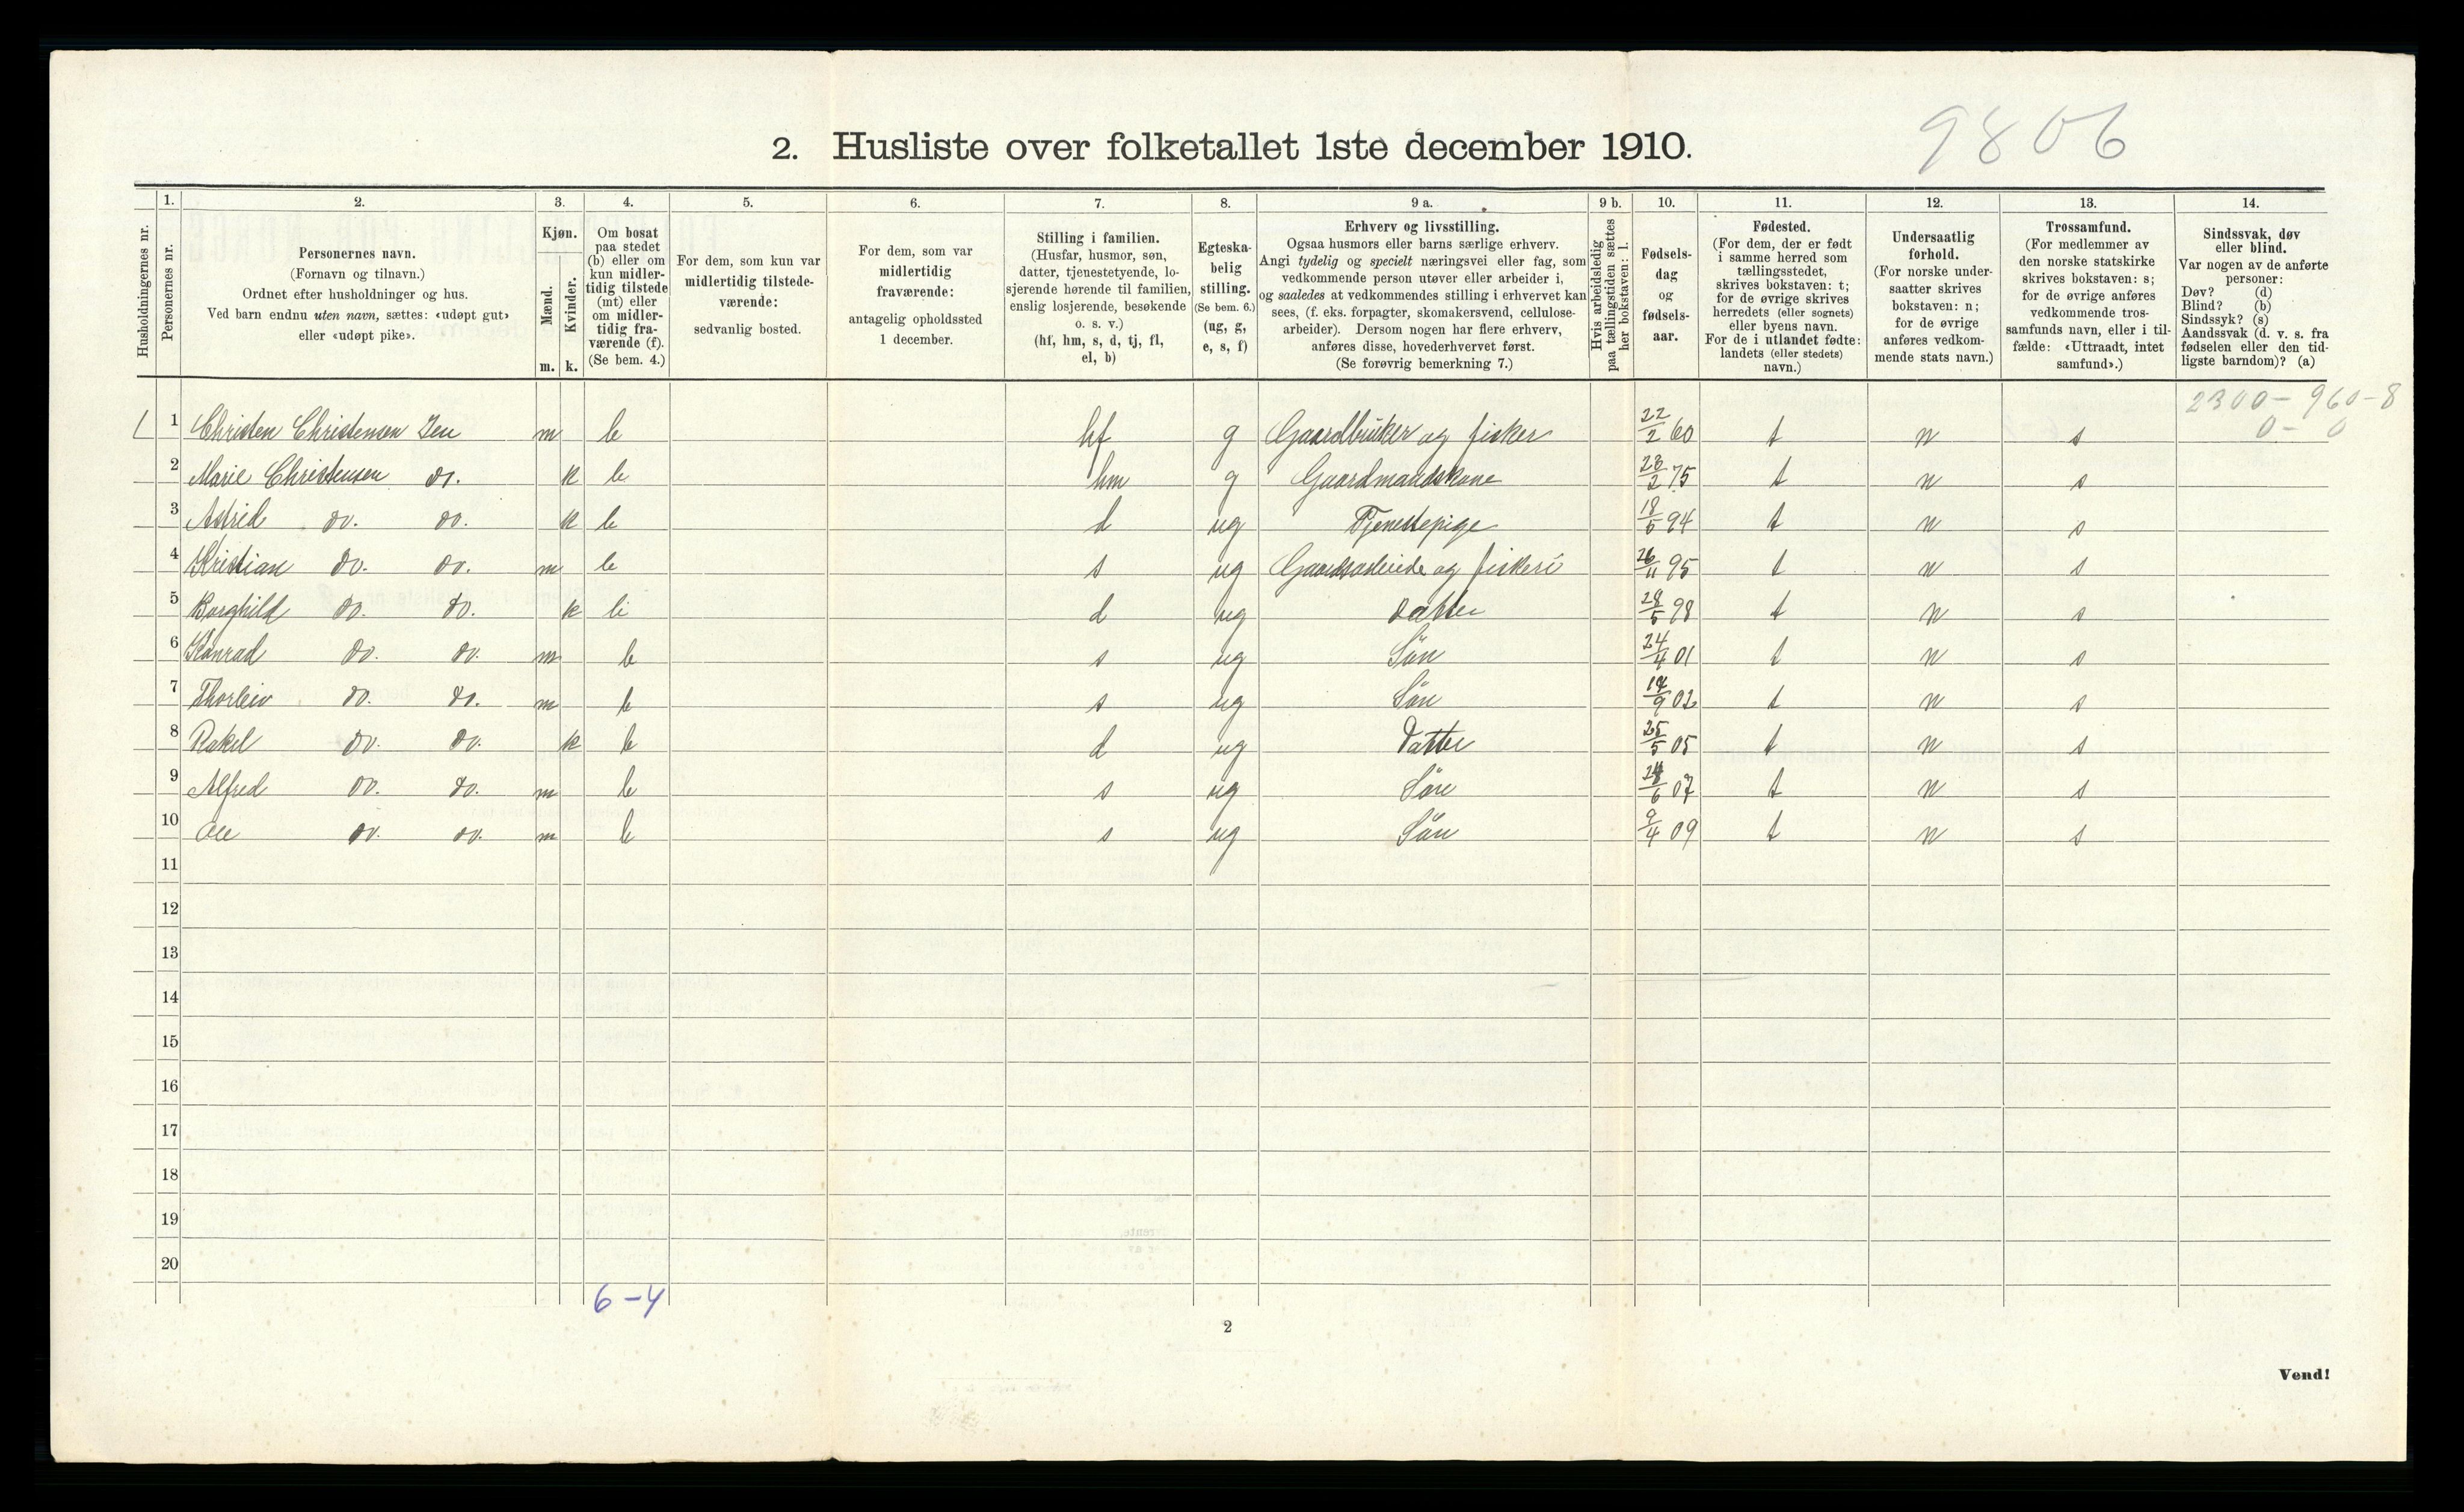 9806
2. Husliste over folketallet 1ste december 1910.
Husholdningernes nr.
1. Personernes nr.
2. Personernes navn. (Fornavn og tilnavn.) Ordnet efter husholdninger og hus. Ved barn endnu uten navn, sættes: «udøpt gut» eller «udøpt pike».
3. Kjøn. Mænd. m. Kvinder. k.
4. Om bosat paa stedet (b) eller om kun midlertidig tilstede (mt) eller om midlertidig fraværende (f). (Se bem. 4.)
5. For dem, som kun var midlertidig tilstedeværende: sedvanlig bosted.
6. For dem, som var midlertidig fraværende: antagelig opholdssted 1 december.
7. Stilling i familien. (Husfar, husmor, søn, datter, tjenestetyende, losjerende hørende til familien, enslig losjerende, besøkende o. s. v.) (hf, hm, s, d, tj, fl, el, b)
8. Egteskabelig stilling. (Se bem. 6.) (ug, g, e, s, f)
9 a. Erhverv og livsstilling. Ogsaa husmors eller barns særlige erhverv. Angi tydelig og specielt næringsvei eller fag, som vedkommende person utøver eller arbeider i, og saaledes at vedkommendes stilling i erhvervet kan sees, (f. eks. forpagter, skomakersvend, cellulosearbeider). Dersom nogen har flere erhverv, anføres disse, hovederhvervet først. (Se forøvrig bemerkning 7.)
9 b. Hvis arbeidsledig paa tællingstiden sættes her bokstaven: l.
10. Fødselsdag og fødselsaar.
11. Fødested. (For dem, der er født i samme herred som tællingsstedet, skrives bokstaven: t; for de øvrige skrives herredets (eller sognets) eller byens navn. For de i utlandet fødte: landets (eller stedets) navn.)
12. Undersaatlig forhold. (For norske undersaatter skrives bokstaven: n; for de øvrige anføres vedkommende stats navn.)
13. Trossamfund. (For medlemmer av den norske statskirke skrives bokstaven: s; for de øvrige anføres vedkommende trossamfunds navn, eller i tilfælde: «Uttraadt, intet samfund».)
14. Sindssvak, døv eller blind. Var nogen av de anførte personer: Døv? (d) Blind? (b) Sindssyk? (s) Aandssvak (d. v. s. fra fødselen eller den tidligste barndom)? (a)
2300 - 960 - 8
0 - 0
1 1 Christen Christensen m b hf g Gaardbruker og fisker 22/2 60 t n s
2 Marie Christensen do. k b hm g Gaardmandskone 23/2 75 t n s
3 Astrid do. do. k b d ug Tjenestepige 18/5 94 t n s
4 Kristian do. do. m b s ug og fiskeri 26/11 95 t n s
5 Borghild do. do. k b d ug Datter 28/5 98 t n s
6 Konrad do. do. m b s ug Sön 24/4 01 t n s
7 Thorleiv do. do. m b s ug Sön 02 t n s
8 Rakel do. do. k b d ug Datter 25/5 05 t n s
9 Alfred do. do. m b s ug Sön 07 t n s
10 Ole do. do. m b s ug Sön 9/4 09 t n s
11
12
13
14
15
16
17
18
19
20
6-4
2
Vend!